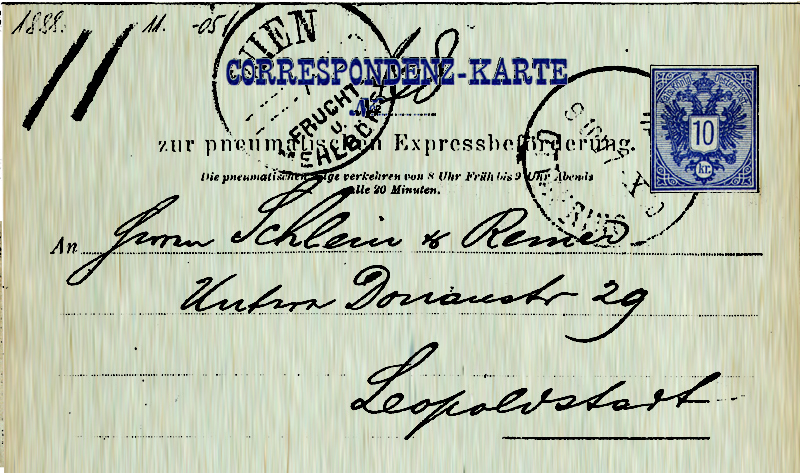 1888. 11. -05
WIEN
FRUCHT
u.
MEHLBÖRSE
CORRESPONDENZ-KARTE
zur pneumatischen Expressbeförderung.
10
kr.
Die pneumatischen Züge verkehren von 8 Uhr Früh bis 9 Uhr Abends
alle 20 Minuten.
An Herrn Schlein & Remer
Untere Donaustr 29
Leopoldstadt